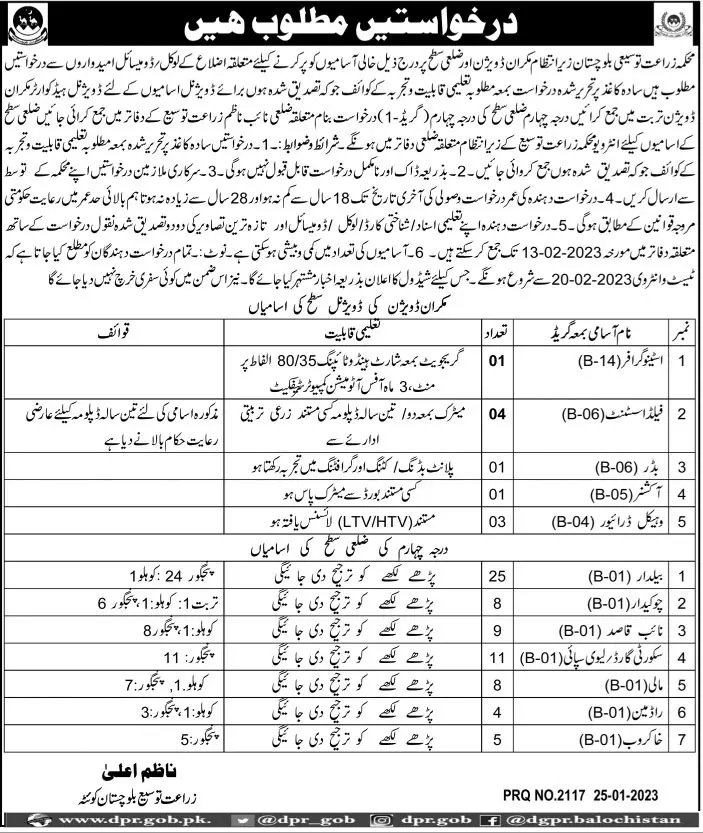 درخواستیں مطلوب ہیں
محکمہ زراعت توسیعی بلوچستان زیر انتظام مکران ڈویژن اور ضلعی سطح پر درج ذیل خالی آسامیوں کو پر کرنے کیلئے متعلقہ اضلاع کے لوکل/ڈومیسائل امیدواروں سے درخواستیں
مطلوب ہیں سادہ کاغذ پر تحریر شدہ درخواست بمعہ مطلوبہ تعلیمی قابلیت و تجربہ کے کوائف جو کہ تصدیق شدہ ہوں برائے ڈویژنل آسامیوں کے لئے ڈویژنل ہیڈ کوارٹر مکران
ڈویژن تربت میں جمع کرائیں درجہ چہارم ضلعی سطح کی درجہ چہارم (گریڈ-1) درخواست بنام متعلقہ ضلعی نائب ناظم زراعت توسیع کے دفاتر میں جمع کرائی جائیں ضلعی سطح
کے اسامیوں کیلئے انٹرویو محکمہ زراعت توسیع کے زیر انتظام متعلقہ ضلعی دفاتر میں ہونگے۔ شرائط و ضوابط:۔ 1۔ درخواستیں سادہ کاغذ پر تحریر شدہ بمعہ مطلوبہ تعلیمی قابلیت و تجربہ
کے کوائف جو کہ تصدیق شدہ ہوں جمع کروائی جائیں۔ 2۔ بذریعہ ڈاک اور نامکمل درخواست قابل قبول نہیں ہوگی۔ 3۔ سرکاری ملازمین درخواستیں اپنے محکمہ کے توسط
سے ارسال کریں۔ 4۔ درخواست دہندہ کی عمر درخواست وصولی کی آخری تاریخ تک 18 سال سے کم نہ ہو اور 28 سال سے زیادہ نہ ہو تاہم بالائی حد عمر میں رعایت حکومتی
مروجہ قوانین کے مطابق ہوگی۔ 5۔ درخواست دہندہ اپنے تعلیمی اسناد/شناختی کارڈ/لوکل/ڈومیسائل اور تازہ ترین تصاویر کی دو دو تصدیق شدہ نقول درخواست کے ساتھ
متعلقہ دفاتر میں مورخہ 13-02-2023 تک جمع کر سکتے ہیں۔ 6۔ آسامیوں کی تعداد میں کمی و بیشی ہو سکتی ہے۔ نوٹ:۔ تمام درخواست دہندگان کو مطلع کیا جاتا ہے کہ
ٹیسٹ و انٹروی 20-02-2023 سے شروع ہونگے۔ جس کیلئے شیڈول کا اعلان بذریعہ اخبار مشتہر کیا جائے گا۔ نیز اس ضمن میں کوئی سفری خرچ نہیں دیا جائے گا
مکران ڈویژن کی ڈویژنل سطح کی اسامیاں
نمبر نام آسامی بمعہ گریڈ تعداد تعلیمی قابلیت قوائف
1 اسٹینوگرافر (B-14) 01 گریجویٹ بمعہ شارٹ ہینڈ و ٹائپنگ 80/35 الفاظ پر
منٹ، 3 ماہ آفس آٹومیشن کمپیوٹر سرٹیفکیٹ
2 فیلڈ اسسٹنٹ (B-06) 04 میٹرک بمعہ دو/تین سالہ ڈپلومہ کسی مستند زرعی تربیتی مذکورہ اسامی کی لئے تین سالہ ڈپلومہ کیلئے عارضی
ادارئے سے رعایت حکام بالا نے دیا ہے
3 بڈر (B-06) 01 پلانٹ بڈنگ/کٹنگ اور گرافٹنگ میں تجربہ رکھتا ہو
4 آکشنر (B-05) 01 کسی مستند بورڈ سے میٹرک پاس ہو
5 وہیکل ڈرائیور (B-04) 03 مستند (LTV/HTV) لائسنس یافتہ ہو
درجہ چہارم کی ضلعی سطح کی اسامیاں
1 بیلدار (B-01) 25 پڑھے لکھے کو ترجیح دی جائیگی پنجگور 24 :کوہلو1
2 چوکیدار (B-01) 8 پڑھے لکھے کو ترجیح دی جائیگی تربت1: کوہلو:1، پنجگور 6
3 نائب قاصد (B-01) 9 پڑھے لکھے کو ترجیح دی جائیگی کوہلو:1، پنجگور8
4 سکورٹی گارڈ/لیوی سپائی (B-01) 11 پڑھے لکھے کو ترجیح دی جائیگی پنجگور: 11
5 مالی (B-01) 8 پڑھے لکھے کو ترجیح دی جائیگی کوہلو.1, پنجگور:7
6 راڈمین (B-01) 4 پڑھے لکھے کو ترجیح دی جائیگی کوہلو:1، پنجگور:3
7 خاکروب (B-01) 5 پڑھے لکھے کو ترجیح دی جائیگی پنجگور:5
ناظم اعلیٰ
زراعت توسیع بلوچستان کوئٹہ
PRQ NO.2117 25-01-2023
www.dpr.gob.pk. @dpr_gob @dgpr.balochistan